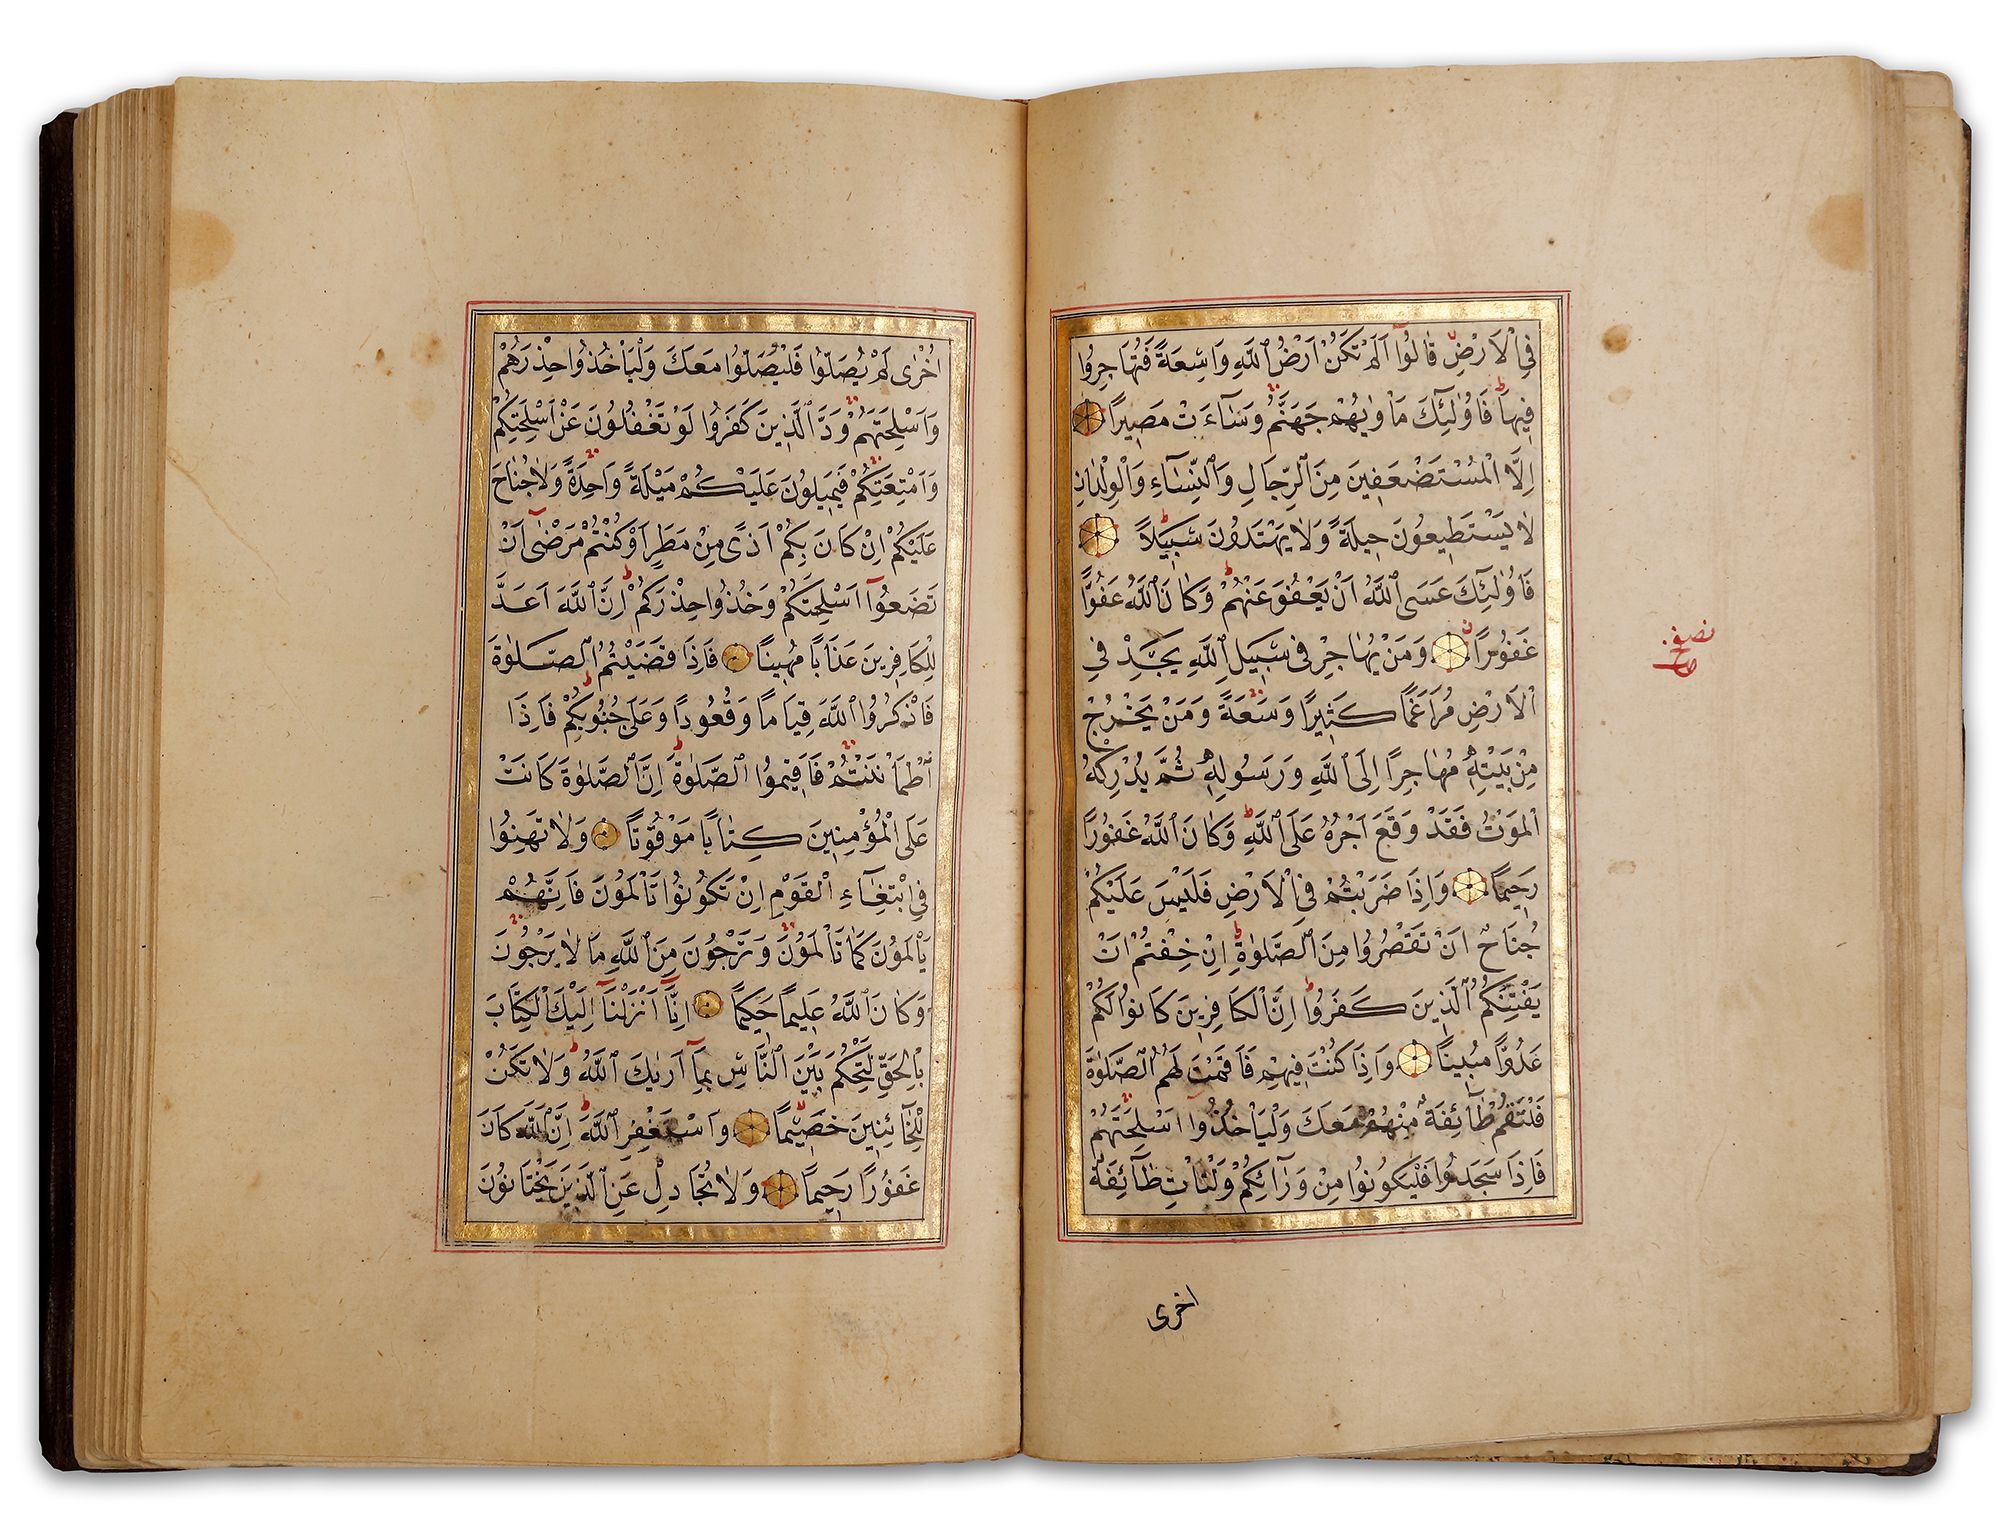 فِي الْاَرْضِ قَالُوٓا اَلَمْ تَكُنْ اَرْضُ اللّٰهِ وَاسِعَةً فَتُهَاجِرُوا
فِيهَا فَاُولٰٓئِكَ مَاْوٰيهُمْ جَهَنَّمُ وَسَآءَتْ مَصِيرًا
اِلَّا الْمُسْتَضْعَفِينَ مِنَ الرِّجَالِ وَالنِّسَآءِ وَالْوِلْدَانِ
لَا يَسْتَطِيعُونَ حِيلَةً وَلَا يَهْتَدُونَ سَبِيلًا
فَاُولٰٓئِكَ عَسَى اللّٰهُ اَنْ يَعْفُوَ عَنْهُمْ وَكَانَ اللّٰهُ عَفُوًّا
غَفُورًا وَمَنْ يُهَاجِرْ فِي سَبِيلِ اللّٰهِ يَجِدْ فِي
الْاَرْضِ مُرَاغَمًا كَثِيرًا وَسَعَةً وَمَنْ يَخْرُجْ
مِنْ بَيْتِهِ مُهَاجِرًا اِلَى اللّٰهِ وَرَسُولِهِ ثُمَّ يُدْرِكْهُ
الْمَوْتُ فَقَدْ وَقَعَ اَجْرُهُ عَلَى اللّٰهِ وَكَانَ اللّٰهُ غَفُورًا
رَحِيمًا وَاِذَا ضَرَبْتُمْ فِي الْاَرْضِ فَلَيْسَ عَلَيْكُمْ
جُنَاحٌ اَنْ تَقْصُرُوا مِنَ الصَّلٰوةِ اِنْ خِفْتُمْ اَنْ
يَفْتِنَكُمُ الَّذِينَ كَفَرُوا اِنَّ الْكَافِرِينَ كَانُوا لَكُمْ
عَدُوًّا مُبِينًا وَاِذَا كُنْتَ فِيهِمْ فَاَقَمْتَ لَهُمُ الصَّلٰوةَ
فَلْتَقُمْ طَآئِفَةٌ مِنْهُمْ مَعَكَ وَلْيَاْخُذُوٓا اَسْلِحَتَهُمْ
فَاِذَا سَجَدُوا فَلْيَكُونُوا مِنْ وَرَآئِكُمْ وَلْتَاْتِ طَآئِفَةٌ
اخرى
نصف
حزب
اُخْرٰى لَمْ يُصَلُّوا فَلْيُصَلُّوا مَعَكَ وَلْيَاْخُذُوا حِذْرَهُمْ
وَاَسْلِحَتَهُمْ وَدَّ الَّذِينَ كَفَرُوا لَوْ تَغْفُلُونَ عَنْ اَسْلِحَتِكُمْ
وَاَمْتِعَتِكُمْ فَيَمِيلُونَ عَلَيْكُمْ مَيْلَةً وَاحِدَةً وَلَا جُنَاحَ
عَلَيْكُمْ اِنْ كَانَ بِكُمْ اَذًى مِنْ مَطَرٍ اَوْ كُنْتُمْ مَرْضٰٓى اَنْ
تَضَعُوٓا اَسْلِحَتَكُمْ وَخُذُوا حِذْرَكُمْ اِنَّ اللّٰهَ اَعَدَّ
لِلْكَافِرِينَ عَذَابًا مُهِينًا فَاِذَا قَضَيْتُمُ الصَّلٰوةَ
فَاذْكُرُوا اللّٰهَ قِيَامًا وَقُعُودًا وَعَلٰى جُنُوبِكُمْ فَاِذَا
اطْمَاْنَنْتُمْ فَاَقِيمُوا الصَّلٰوةَ اِنَّ الصَّلٰوةَ كَانَتْ
عَلَى الْمُؤْمِنِينَ كِتَابًا مَوْقُوتًا وَلَا تَهِنُوا
فِي ابْتِغَآءِ الْقَوْمِ اِنْ تَكُونُوا تَاْلَمُونَ فَاِنَّهُمْ
يَاْلَمُونَ كَمَا تَاْلَمُونَ وَتَرْجُونَ مِنَ اللّٰهِ مَا لَا يَرْجُونَ
وَكَانَ اللّٰهُ عَلِيمًا حَكِيمًا اِنَّٓا اَنْزَلْنَٓا اِلَيْكَ الْكِتَابَ
بِالْحَقِّ لِتَحْكُمَ بَيْنَ النَّاسِ بِمَٓا اَرٰيكَ اللّٰهُ وَلَا تَكُنْ
لِلْخَآئِنِينَ خَصِيمًا وَاسْتَغْفِرِ اللّٰهَ اِنَّ اللّٰهَ كَانَ
غَفُورًا رَحِيمًا وَلَا تُجَادِلْ عَنِ الَّذِينَ يَخْتَانُونَ